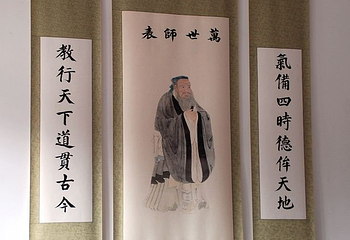 萬世師表
氣備四時德侔天地
教行天下道貫古今